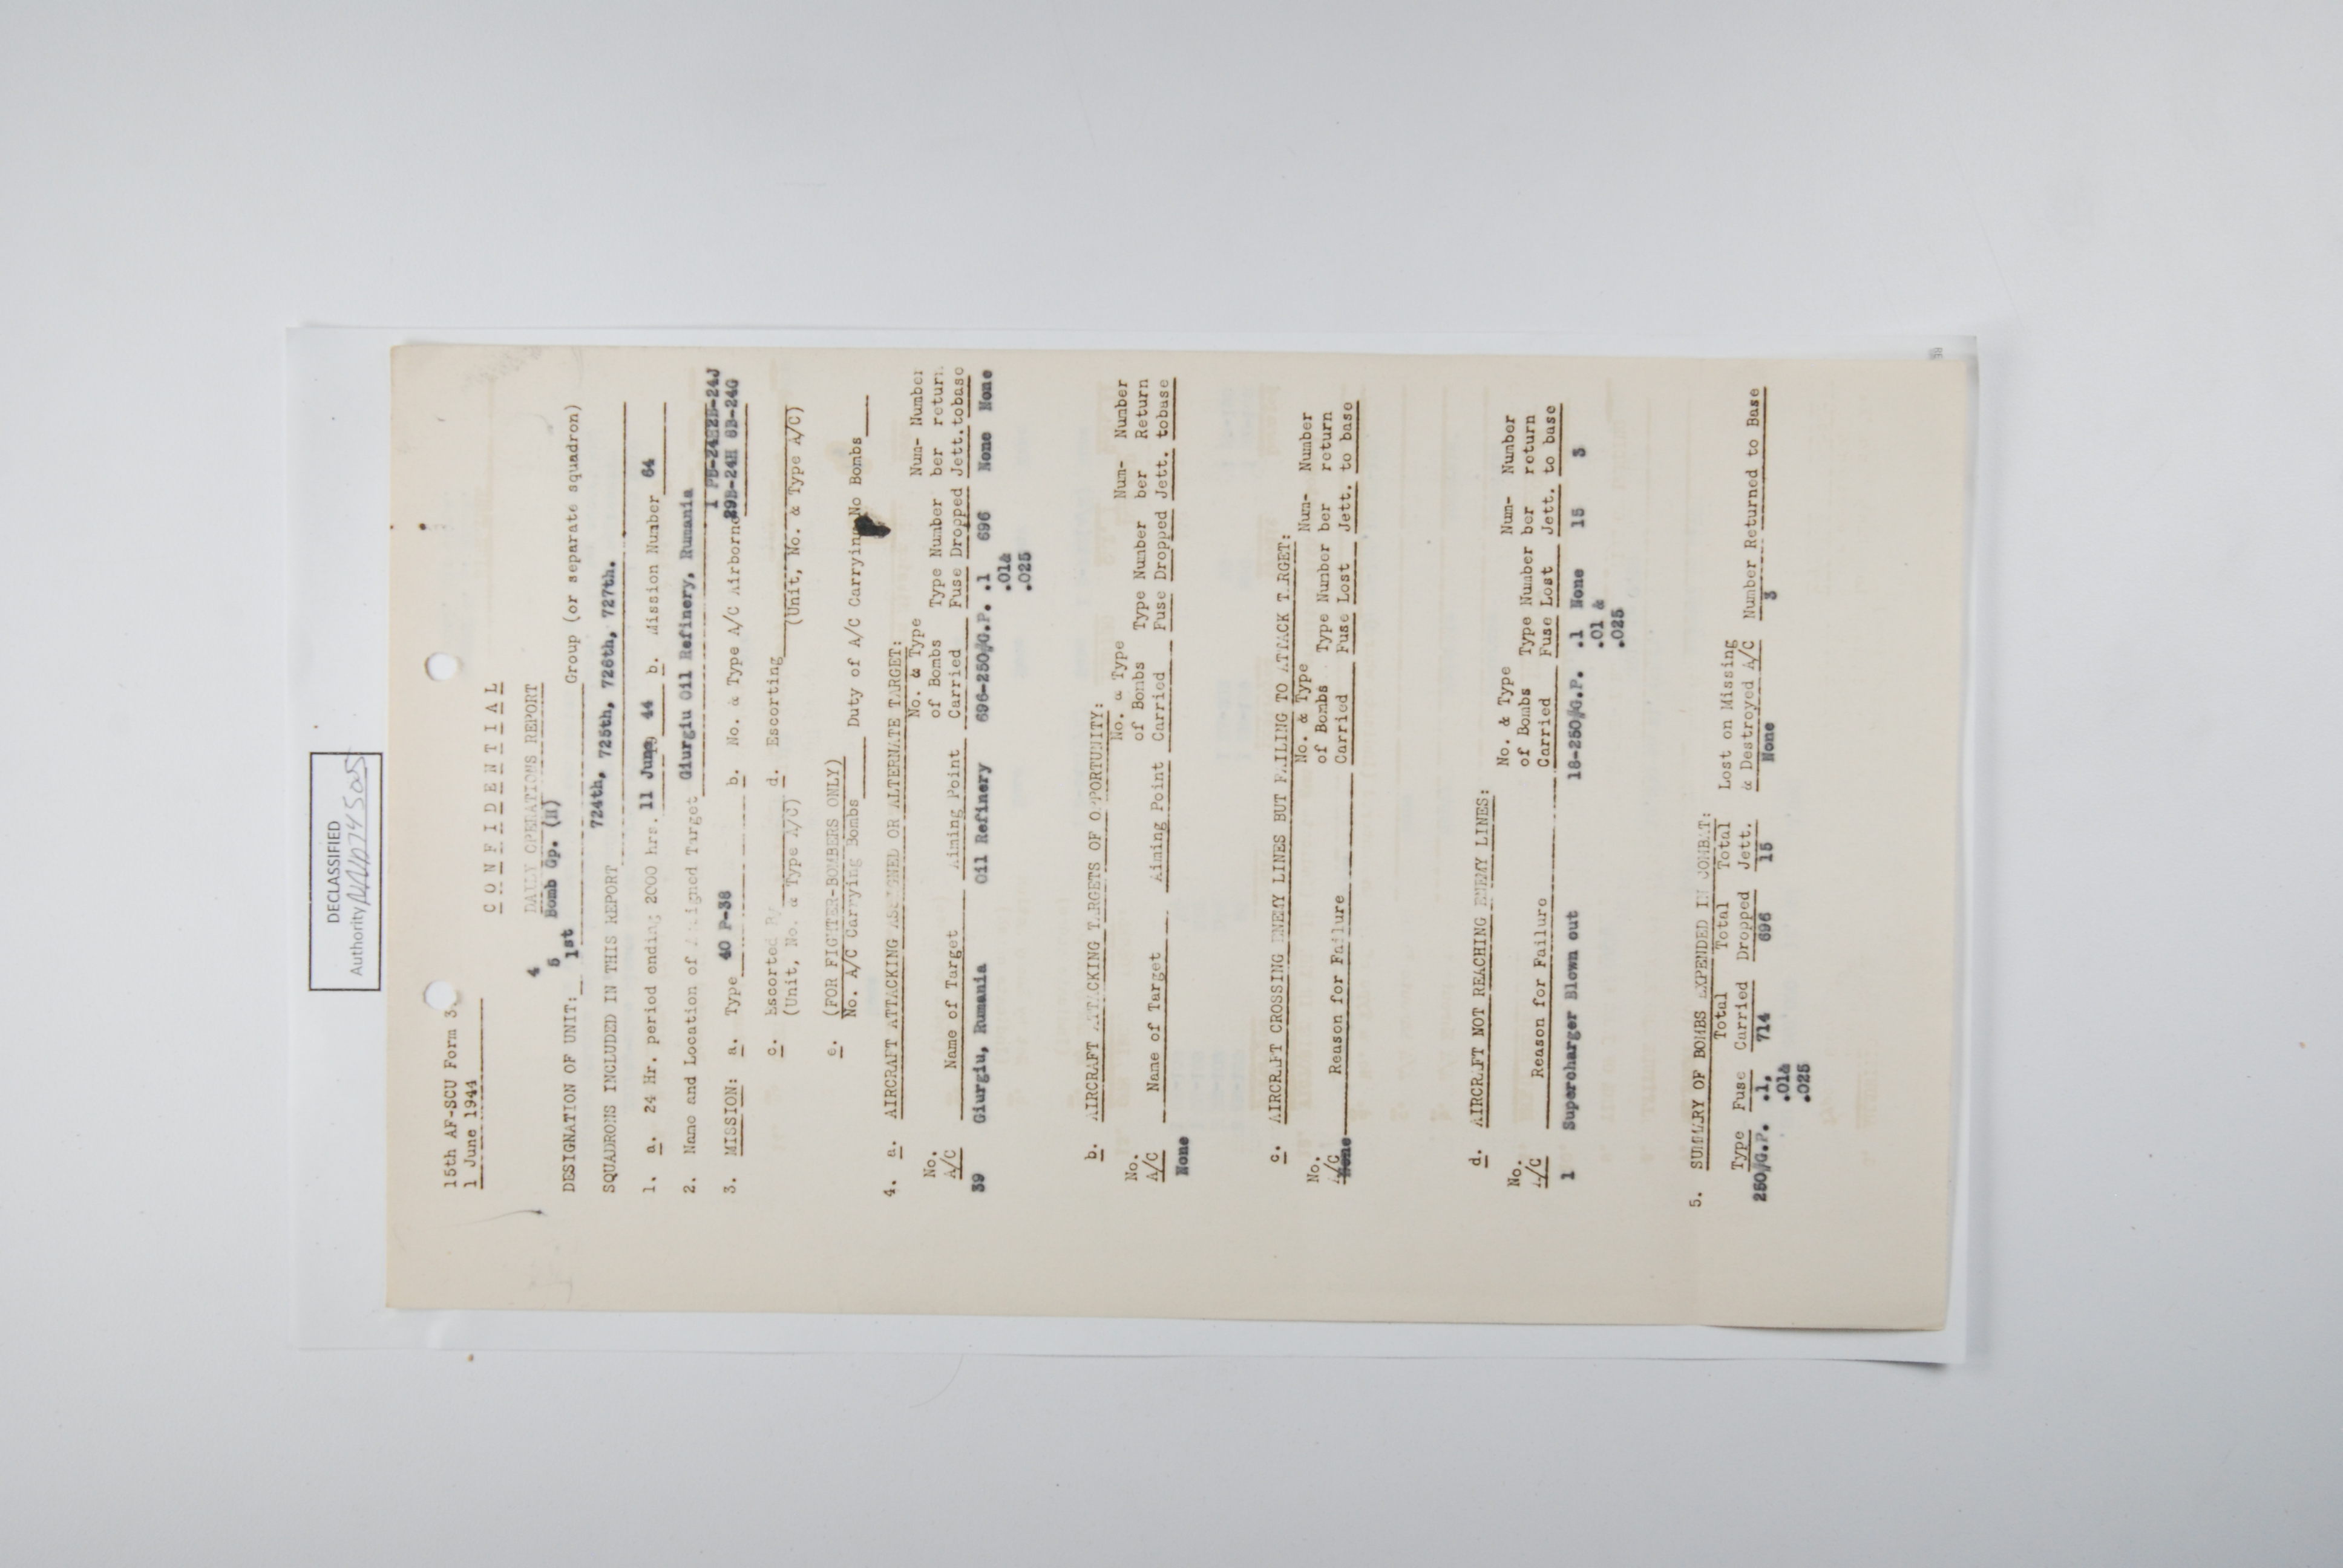 DECLASSIFIED
Authority NND 745005
15th AF-SCU Form 3
1 June 1944
C O N F I D E N T I A L
DAILY OPERATIONS REPORT
4
5
1st Bomb Gp. (H)
DESIGNATION OF UNIT: Group (or separate squadron)
SQUADRONS INCLUDED IN THIS REPORT 724th, 725th, 726th, 727th.
1. a. 24 Hr. period ending 2000 hrs. 11 June 19 44 b. Mission Number 64
2. Name and Location of Assigned Target Giurgiu Oil Refinery, Rumania
1 PB-24H2B-24J
3. MISSION: a. Type b. No. & Type A/C Airborne 29B-24H 8B-24G
40 P-38
c. Escorted By d. Escorting
(Unit, No. & Type A/C) (Unit, No. & Type A/C)
e. (FOR FIGHTER-BOMBERS ONLY)
No. A/C Carrying Bombs Duty of A/C Carrying No Bombs
4. a. AIRCRAFT ATTACKING ASSIGNED OR ALTERNATE TARGET:
No. & Type Num- Number
No. of Bombs Type Number ber return
A/C Name of Target Aiming Point Carried Fuse Dropped Jett. tobase
39 Giurgiu, Rumania Oil Refinery 696-250#G.P. .1 696 None None
.01&
.025
b. AIRCRAFT ATTACKING TARGETS OF OPPORTUNITY:
No. & Type Num- Number
No. of Bombs Type Number ber Return
A/C Name of Target Aiming Point Carried Fuse Dropped Jett. tobase
None
c. AIRCRAFT CROSSING ENEMY LINES BUT FAILING TO ATTACK TARGET:
No. & Type Num- Number
No. of Bombs Type Number ber return
A/C Reason for Failure Carried Fuse Lost Jett. to base
None
d. AIRCRAFT NOT REACHING ENEMY LINES:
No. & Type Num- Number
No. of Bombs Type Number ber return
A/C Reason for Failure Carried Fuse Lost Jett. to base
1 Supercharger Blown out 18-250#G.P. .1 None 15 3
.01 &
.025
5. SUMMARY OF BOMBS EXPENDED IN COMBAT:
Total Total Total Lost on Missing
Type Fuse Carried Dropped Jett. & Destroyed A/C Number Returned to Base
250#G.P. .1, 714 696 15 None 3
.01&
.025